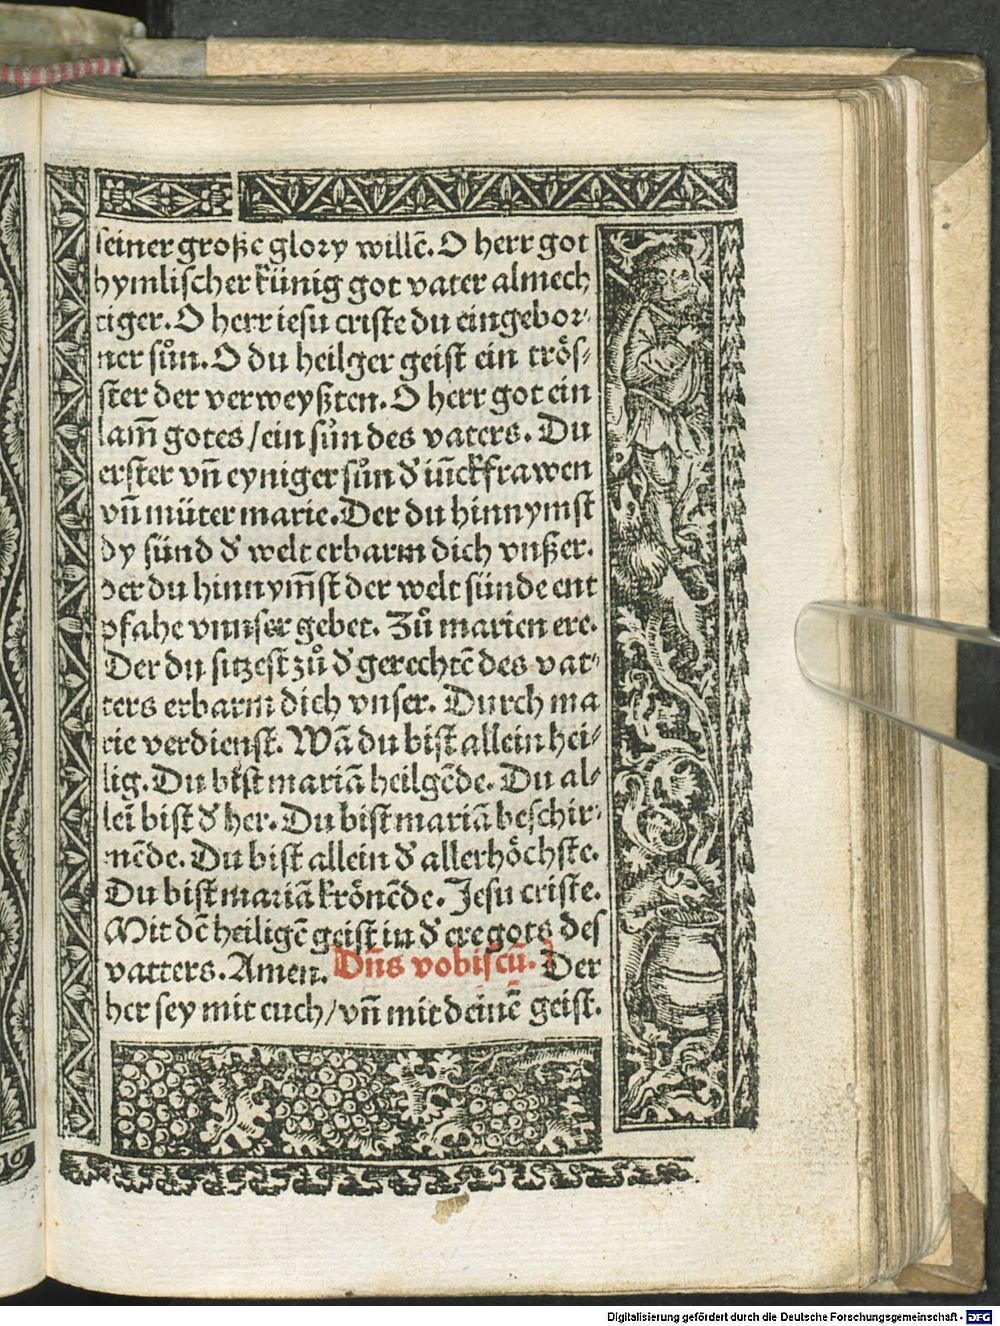 seiner große glory willē. O herr got
hymlischer künig got vater almech
tiger. O herr iesu criste du eingebor⸗
ner sůn. O du heilger geist ein trös⸗
ster der verweyßten. O herr got ein
lam̄ gotes / ein sůn des vaters. Du
erster vn̄ eyniger sůn d̕ iūckfrawen
vn̄ müter marie. Der du hinnymst
dy sünd d̕ welt erbarm dich vnßer.
Der du hinnym̄st der welt sünde ent
pfahe vnnser gebet. Zů marien ere.
Der du sitzest zů d̕ gerechtē des vat⸗
ters erbarm dich vnser. Durch ma
rie verdienst. Wā du bist allein hei⸗
lig. Du bist mariā heilgēde. Du al⸗
lei̅ bist d̕ her. Du bist mariā beschir⸗
mēde. Du bist allein d̕ allerhöchste.
Du bist mariā krönēde. Jesu criste.
Mit dē heiligē geist in d̕ ere gots des
vatters. Amen. Dn̄s vobiscū. Der
her sey mit euch / vn̄ mit deinē geist.
Digitalisierung gefördert durch die Deutsche Forschungsgemeinschaft - DFG